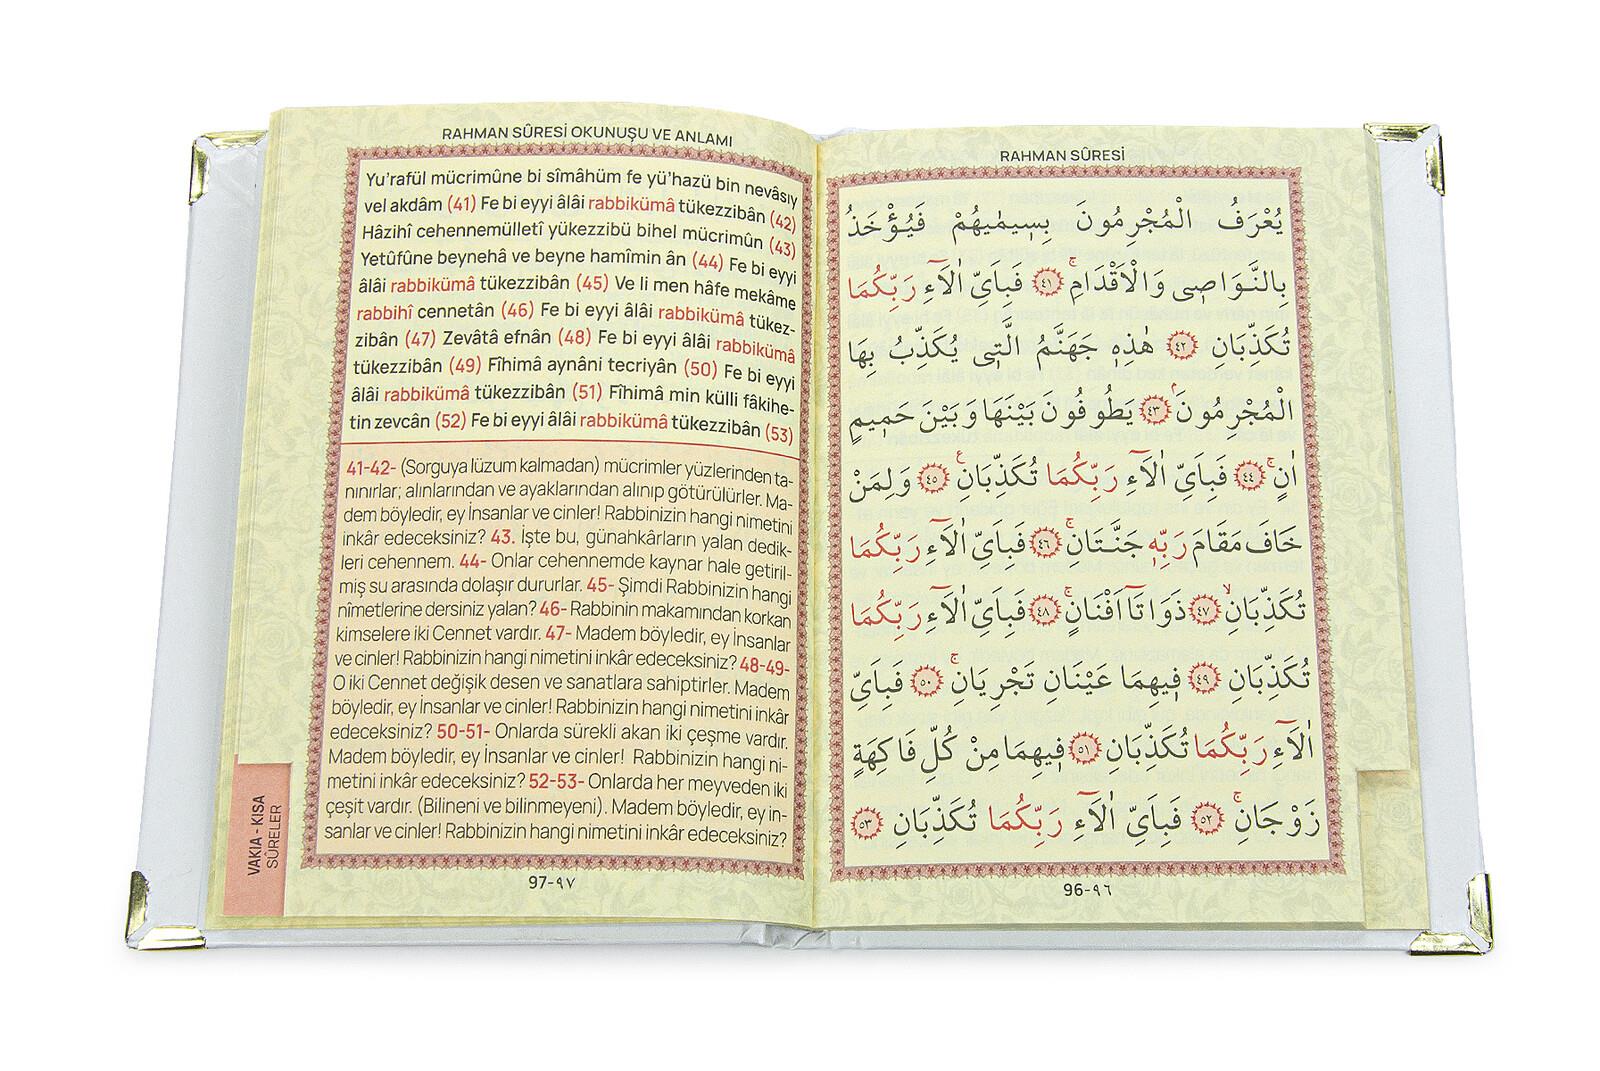 RAHMAN SÛRESİ
يُعْرَفُ الْمُجْرِمُونَ بِسٖيمٰيهُمْ فَيُؤْخَذُ
بِالنَّوَاصٖى وَالْاَقْدَامِۚ ﴿٤١﴾ فَبِاَىِّ اٰلَٓاءِ رَبِّكُمَا
تُكَذِّبَانِ ﴿٤٢﴾ هٰذِهٖ جَهَنَّمُ الَّتٖى يُكَذِّبُ بِهَا
الْمُجْرِمُونَۢ ﴿٤٣﴾ يَطُوفُونَ بَيْنَهَا وَبَيْنَ حَمٖيمٍ
اٰنٍۚ ﴿٤٤﴾ فَبِاَىِّ اٰلَٓاءِ رَبِّكُمَا تُكَذِّبَانِ ﴿٤٥﴾ وَلِمَنْ
خَافَ مَقَامَ رَبِّهٖ جَنَّتَانِۚ ﴿٤٦﴾ فَبِاَىِّ اٰلَٓاءِ رَبِّكُمَا
تُكَذِّبَانِۙ ﴿٤٧﴾ ذَوَاتَٓا اَفْنَانٍۚ ﴿٤٨﴾ فَبِاَىِّ اٰلَٓاءِ رَبِّكُمَا
تُكَذِّبَانِ ﴿٤٩﴾ فٖيهِمَا عَيْنَانِ تَجْرِيَانِۚ ﴿٥٠﴾ فَبِاَىِّ
اٰلَٓاءِ رَبِّكُمَا تُكَذِّبَانِ ﴿٥١﴾ فٖيهِمَا مِنْ كُلِّ فَاكِهَةٍ
زَوْجَانِۚ ﴿٥٢﴾ فَبِاَىِّ اٰلَٓاءِ رَبِّكُمَا تُكَذِّبَانِ ﴿٥٣﴾
96-٩٦
RAHMAN SÛRESİ OKUNUŞU VE ANLAMI
Yu'rafül mücrimûne bi sîmâhüm fe yü'hazü bin nevâsıy
vel akdâm (41) Fe bi eyyi âlâi rabbikümâ tükezzibân (42)
Hâzihî cehennemülletî yükezzibü bihel mücrimûn (43)
Yetûfûne beynehâ ve beyne hamîmin ân (44) Fe bi eyyi
âlâi rabbikümâ tükezzibân (45) Ve li men hâfe mekâme
rabbihî cennetân (46) Fe bi eyyi âlâi rabbikümâ tükez-
zibân (47) Zevâtâ efnân (48) Fe bi eyyi âlâi rabbikümâ
tükezzibân (49) Fîhimâ aynâni tecriyân (50) Fe bi eyyi
âlâi rabbikümâ tükezzibân (51) Fîhimâ min külli fâkihe-
tin zevcân (52) Fe bi eyyi âlâi rabbikümâ tükezzibân (53)
41-42- (Sorguya lüzum kalmadan) mücrimler yüzlerinden ta-
nınırlar; alınlarından ve ayaklarından alınıp götürülürler. Ma-
dem böyledir, ey İnsanlar ve cinler! Rabbinizin hangi nimetini
inkâr edeceksiniz? 43. İşte bu, günahkârların yalan dedik-
leri cehennem. 44- Onlar cehennemde kaynar hale getiril-
miş su arasında dolaşır dururlar. 45- Şimdi Rabbinizin hangi
nîmetlerine dersiniz yalan? 46- Rabbinin makamından korkan
kimselere iki Cennet vardır. 47- Madem böyledir, ey İnsanlar
ve cinler! Rabbinizin hangi nimetini inkâr edeceksiniz? 48-49-
O iki Cennet değişik desen ve sanatlara sahiptirler. Madem
böyledir, ey İnsanlar ve cinler! Rabbinizin hangi nimetini inkâr
edeceksiniz? 50-51- Onlarda sürekli akan iki çeşme vardır.
Madem böyledir, ey İnsanlar ve cinler! Rabbinizin hangi ni-
metini inkâr edeceksiniz? 52-53- Onlarda her meyveden iki
çeşit vardır. (Bilineni ve bilinmeyeni). Madem böyledir, ey in-
sanlar ve cinler! Rabbinizin hangi nimetini inkâr edeceksiniz?
97-٩٧
VAKIA - KISA
SÛRELER